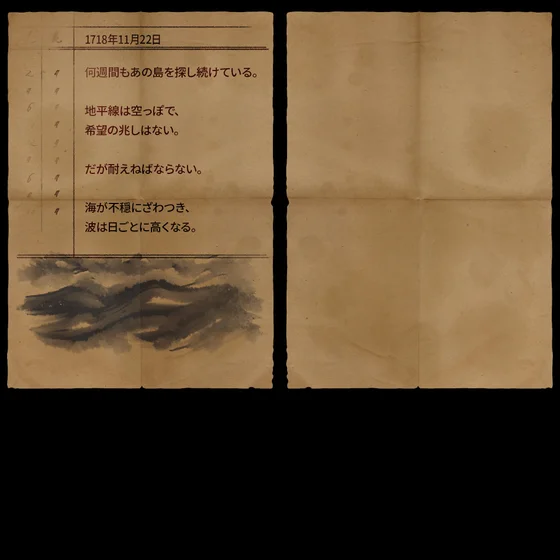 1718年11月22日
何週間もあの島を探し続けている。
地平線は空っぽで、
希望の兆しはない。
だが耐えねばならない。
海が不穏にざわつき、
波は日ごとに高くなる。